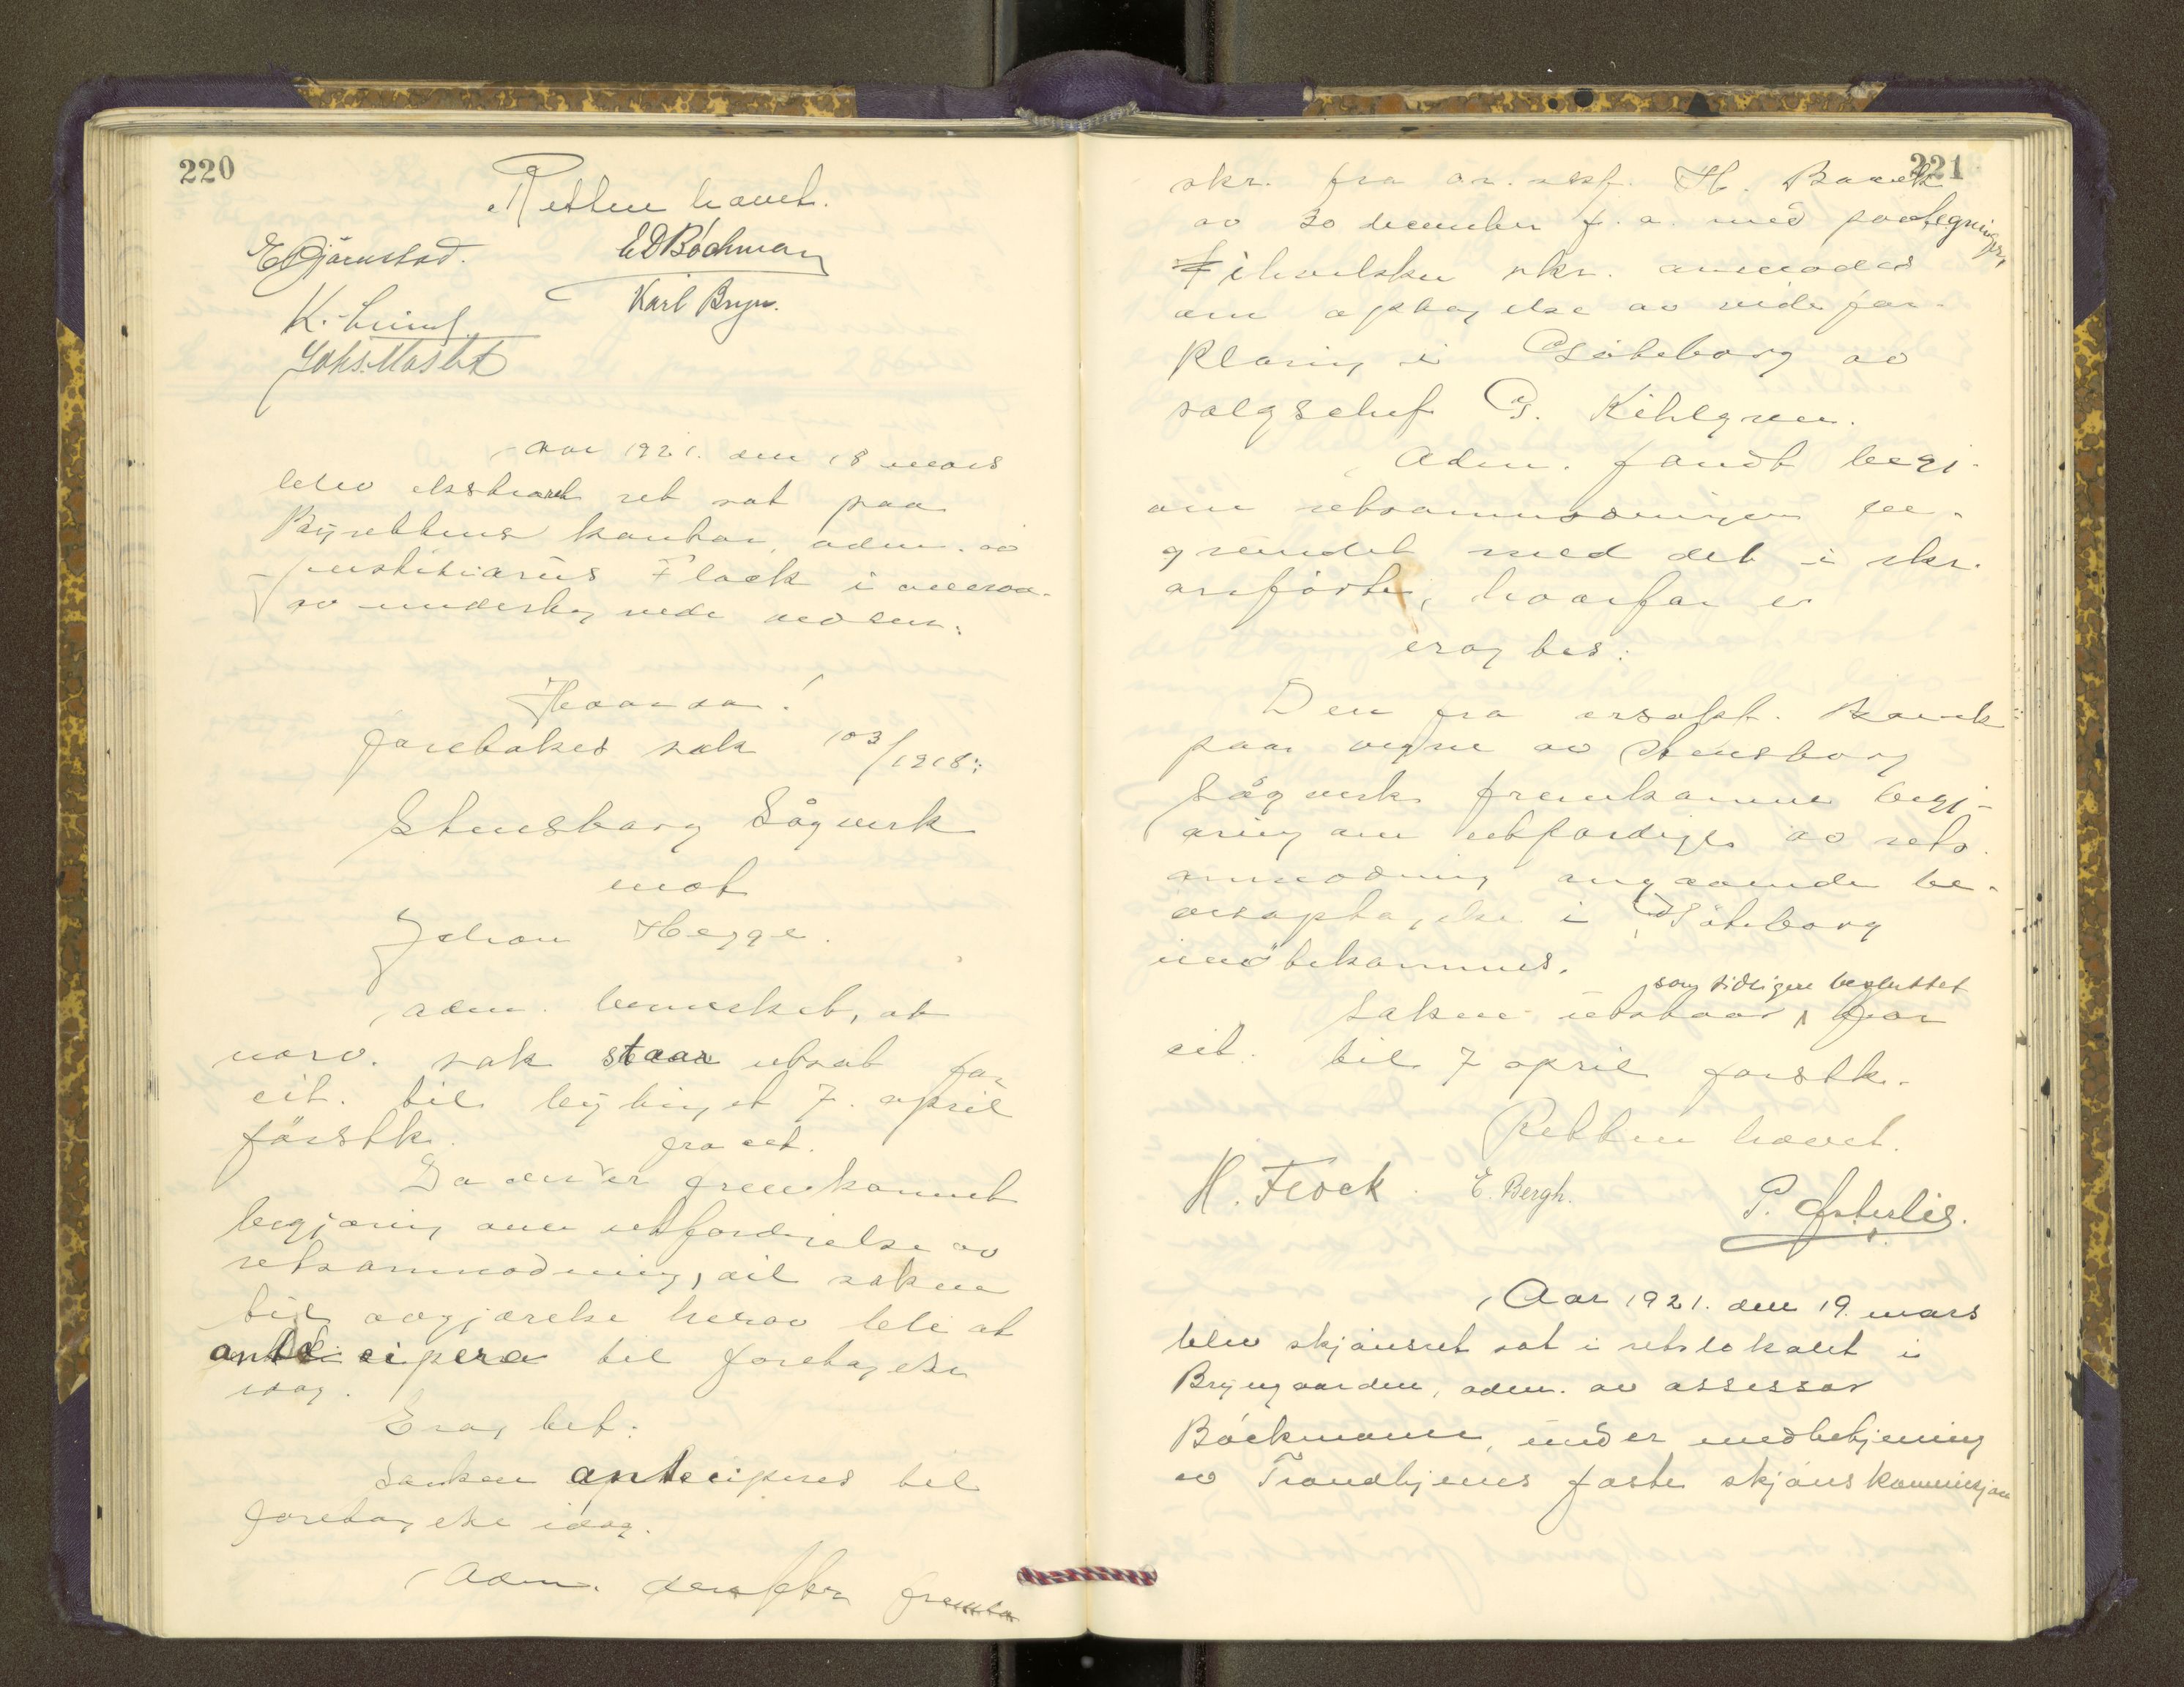 220
Retten hævet.
E Gjärnstad. E D Bóchman
Karl Bryn.
K. Lund
Johs. Masht
Aar 1921. den 18 mars
blev ekstraret ret sat paa
Byrettens kontor, adm. av
justitiarius Flock i nærvæ-
ro undertegnede vidner.
Hvorda!
Foretokes sak 103/1918:
Stensborg Sågverk
mot
Johan Hegge.
Adm. bemerket, at
nærv. sak staar utsat for
eit. til bytinget 7. april
förstk.
fra cit.
Da der er fremkommet
begjæring om utfærdigelse av
retsanmodning, vil saken
til avgjörelse herav bli at
anticipere til foretagelse
idag.
Eragtet:
Saken anticiperes til
foretagelse idag.
Adm. derefter fremla
221
skr. fra or. sakf. H. Bauck
av 30 december f. a. med paategninger,
I hvilken skr. anmodes
om optagelse av vidnefor-
klaring i Göteborg av
salgschef G. Kihlgren.
Adm. fandt begj.
om retsanmodningen be-
grundet med det i skr.
anförte, hvorfor er
eragtes:
Den fra orsakf. Bauck
paa vegne av Stensborg
Sågverk fremkomne begj-
æring om utfærdigelse av rets
anmodning angaaende be-
visoptagelse i Göteborg
imötekommes.
Saken utstaar som tidligere besluttet for
cit. til 7 april förstk.
Retten hævet.
H. Flock. E. Bergh. P. Österlie.
Aar 1921. den 19. mars
blev skjönsret sat i retslokalet i
Bryngaarden, adm. av assessor
Böckmann, under medbetjening
av Trondhjems faste skjönskommisjon